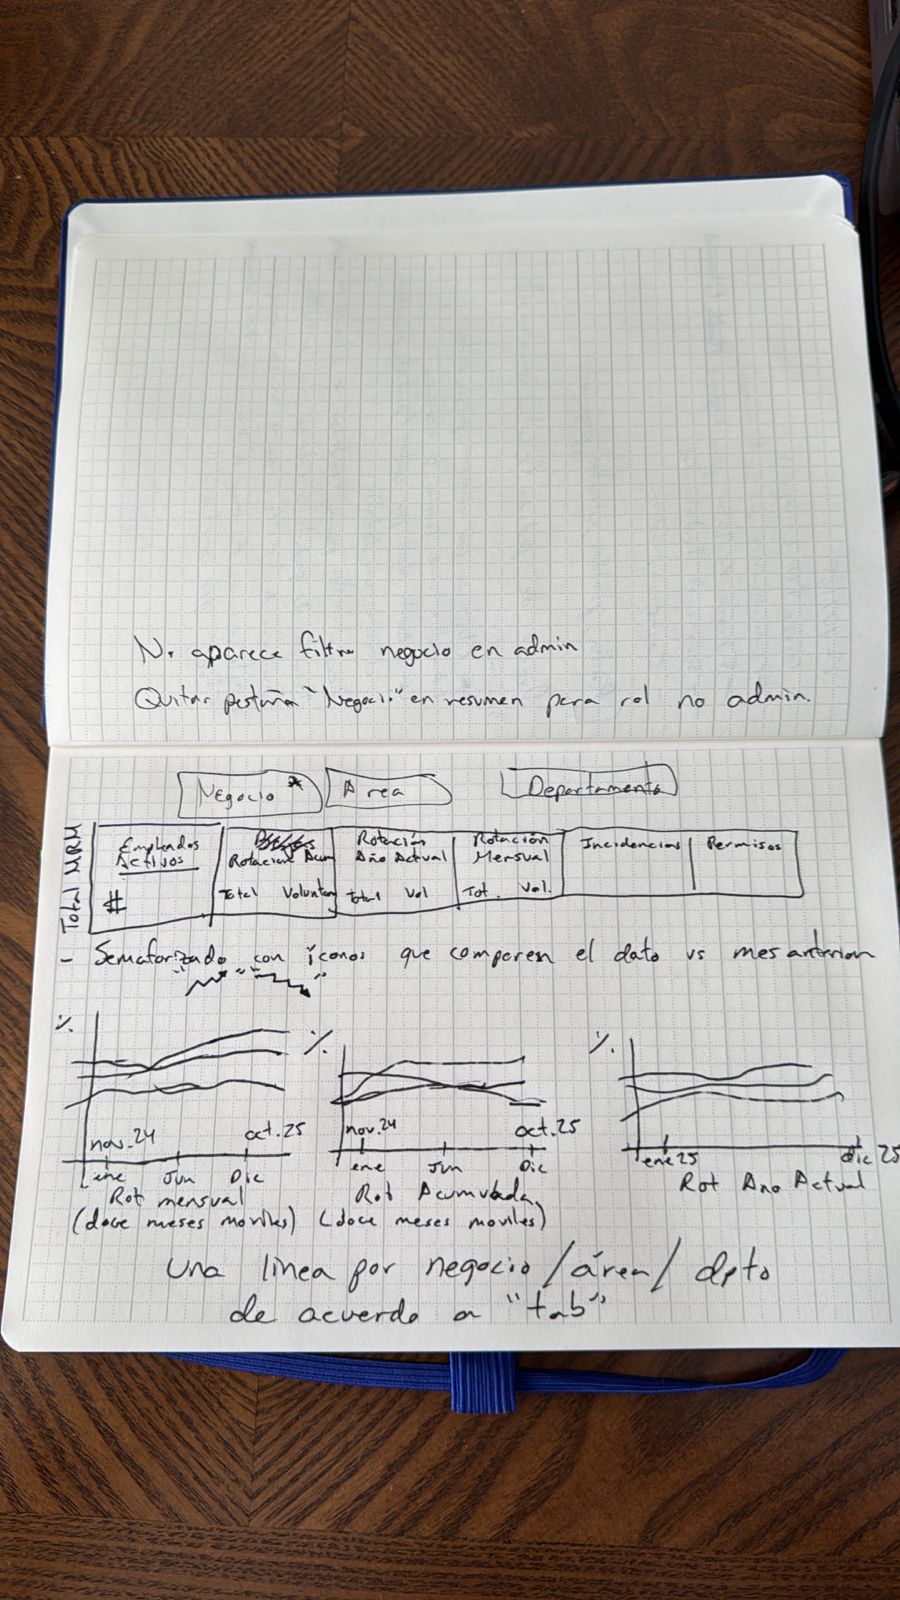 No aparece filtro negocio en admin
Quitar pestaña "Negocio" en resumen para rol no admin.
Negocio * Area Departamento
Total MRM
Empleados Activos
#
Rotacion Acum
Total Voluntar
Rotación Año Actual
Total Vol
Rotación Mensual
Tot. Vol.
Incidencias
Permisos
- Semaforizado con íconos que comparen el dato vs mes anterior
" " " "
%
nov. 24 oct. 25
ene Jun Dic
Rot mensual
(doce meses moviles)
%
nov. 24 oct. 25
ene Jun Dic
Rot Acumulada
(doce meses moviles)
%
ene 25 dic 25
Rot Ano Actual
una linea por negocio / área / dpto
de acuerdo a "tab"